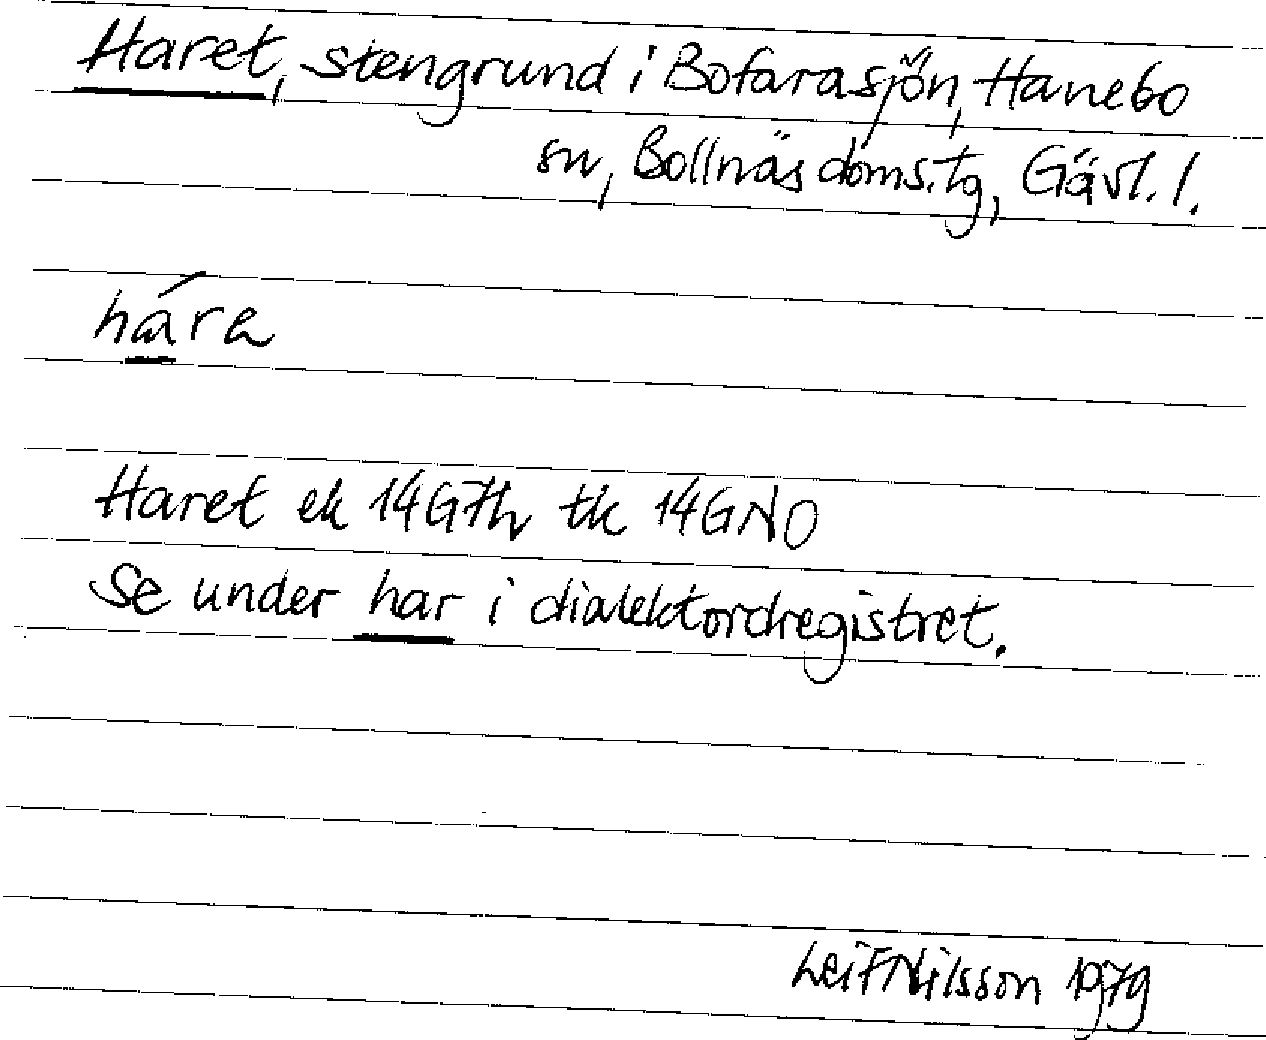 Haret, stengrund i Bofarasjön, Hanebo
sn, Bollnäs doms.tg, Gävl. l.
há̱ra
Haret ek 14G7h tk 14GNO
Se under har i dialektordregistret.
Leif Nilsson 1979